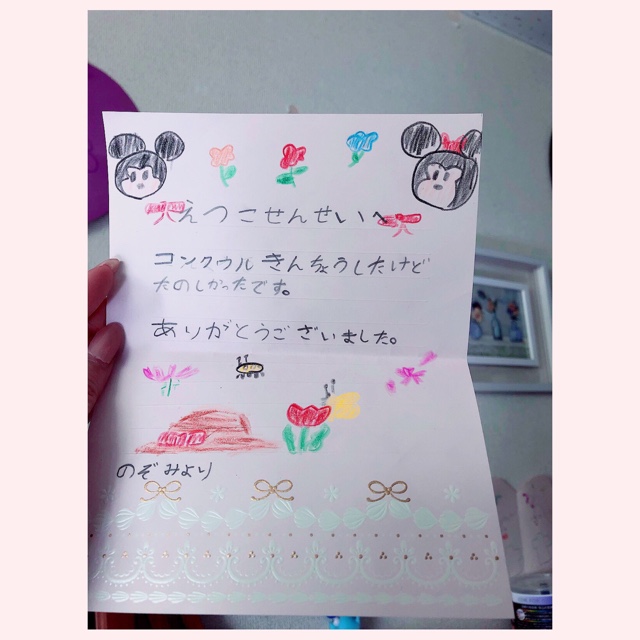 えつこせんせいへ
コンクウルきんちょうしたけど
たのしかったです。
ありがとうございました。
のぞみより